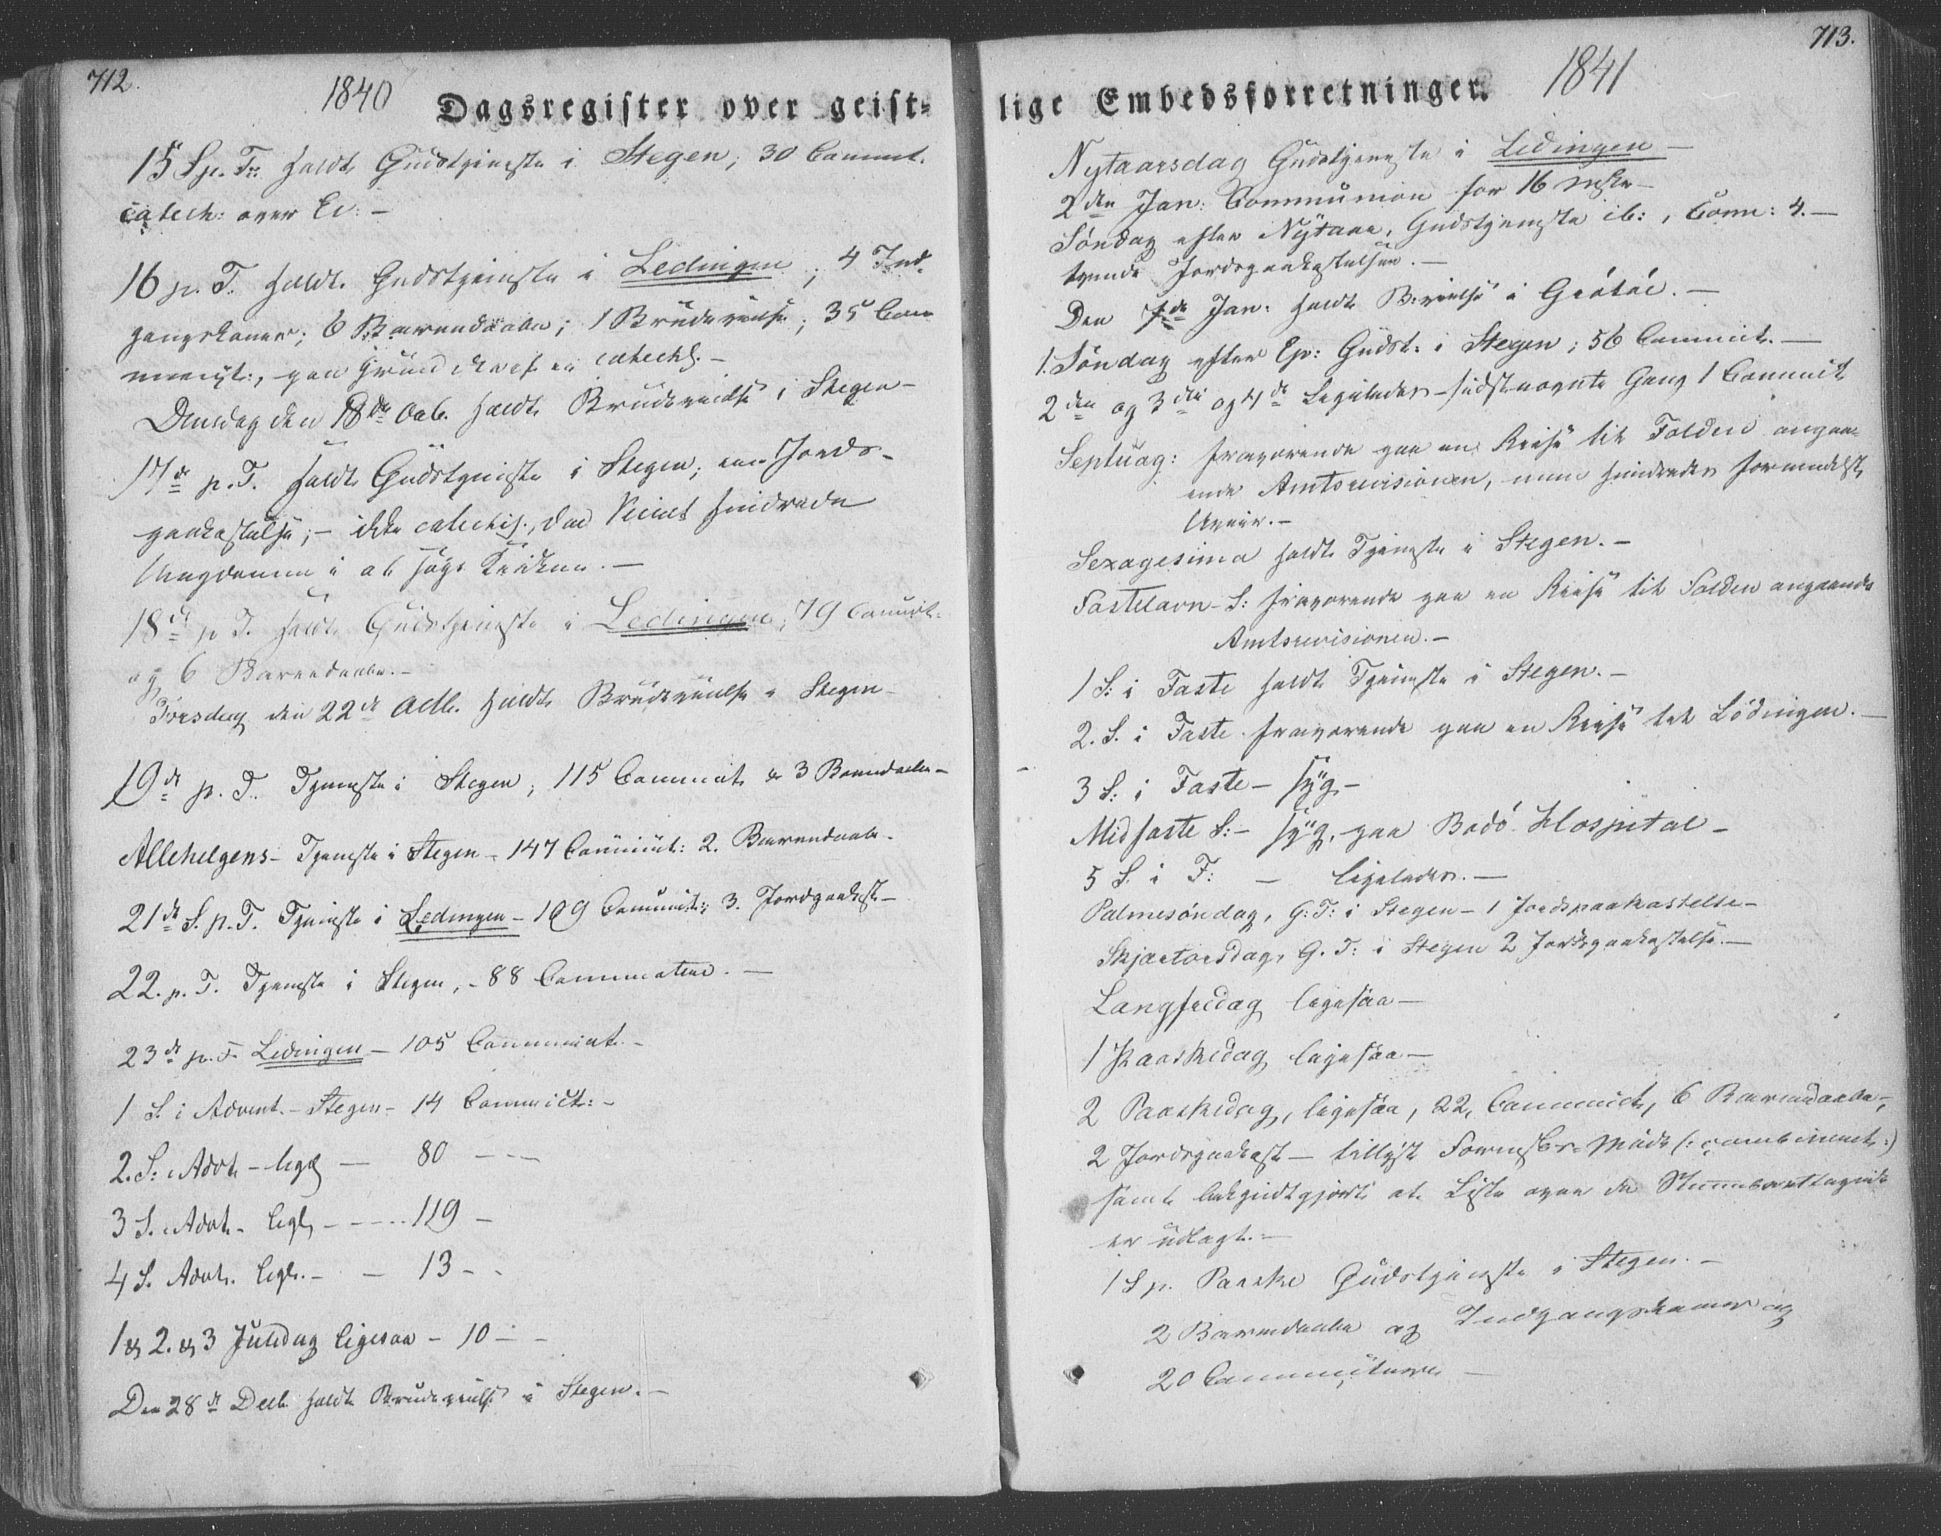 712.
1840
Dagsregister over geist-
15 S. p. Tr. holdt Gudstjeneste i Stegen; 30 Commt.
catech: over Ev: –
16 p. T. holdt Gudstjeneste i Ledingen; 4 Ind-
gangskoner; 6 Barnedaabe; 1 Brudevielse; 35 Com
municit:, paa Grund deraf ei catechs. –
Dinsdag den 18de holdt Brudevielse i Stegen –
17de p. T. holdt Gudstjeneste i Stegen, en Jords-
paakastelse; – ikke catechis., da Veiret hindrede
Ungdommen i at søge Kirken. –
18de p. T. holdt Gudstjeneste i Ledingen, 79 Commt.
og 6 Barnedaabe. –
Torsdag den 22de holdt Brudevielse i Stegen –
19de p. T. Tjeneste i Stegen, 115 Communt. & 3 Barnedaabe –
Allehelgens – Tjeneste i Stegen – 147 Communt: 2. Barnedaabe –
21de S. p. T. Tjeneste i Ledingen – 109 Communt: 3. Jordpaakast –
22. p. T. Tjeneste i Stegen, – 88 Communicatene. –
23de p. T. Ledingen – 105 Communt. –
1 S. i Advent. – Stegen – 14 Communict: –
2. S: Advt – ligl – 80 – –
3 S. Advt. – ligl – – – 119 –
4 S. Advt. ligl. – – 13 – -
1 & 2. & 3 Juledag ligesaa – 10 – –
Den 28de Decb holdt Brudevielse i Stegen. –
713.
1841
lige Embedsforretninger.
Nytaarsdag Gudstjeneste i Ledingen –
2den Jan: Communion for 16 –
Søndag efter Nytaar, Gudstjeneste ib:, Comm: 4. –
trende Jordspaakastelser. –
Den Jan: holdt Bvielse i Grøtøe. –
1. Søndag efter Ep: Gudst: i Stegen; 56 Communict. –
2den og 3die og 4de Ligeledes – sidstnævnte Gang 1 Communict
Septuag: fraværende paa en Reise til Folden angaa-
ende Amtsrevisionen, men hindredes formedelst
Uveir. –
Sexagesima holdt Tjeneste i Stegen. –
Fastelavn – S: fraværende paa en Reise til Folden angaaende
Amtsrevisionen. –
1 S: i Faste holdt Tjeneste i Stegen. –
2. S. i Faste fraværende paa en Reise til Lødingen. –
3 S: i Faste – syg –
Midfaste S: – syg, paa Bodø Hospital –
5 S. i F: – ligeledes. –
Palmesøndag, G: T: i Stegen – 1 Jordspaakastelse –
Skjærtorsdag, G. T: i Stegen 2 Jordspaakastelse. –
Langfredag ligesaa –
1 Paaskedag ligesaa –
2 Paaskedag, ligesaa, 22, Communict, 6 Barnedaabe –,
2 Jordspaakast – tillyst Møde (: :)
samt bekjendtgjort at Liste over de Stemmeberettigede
er udlagt. –
1 S p. Paaske Gudstjeneste i Stegen. –
2 Barnedaabe og Indgangskoner og
20 Communicanter –